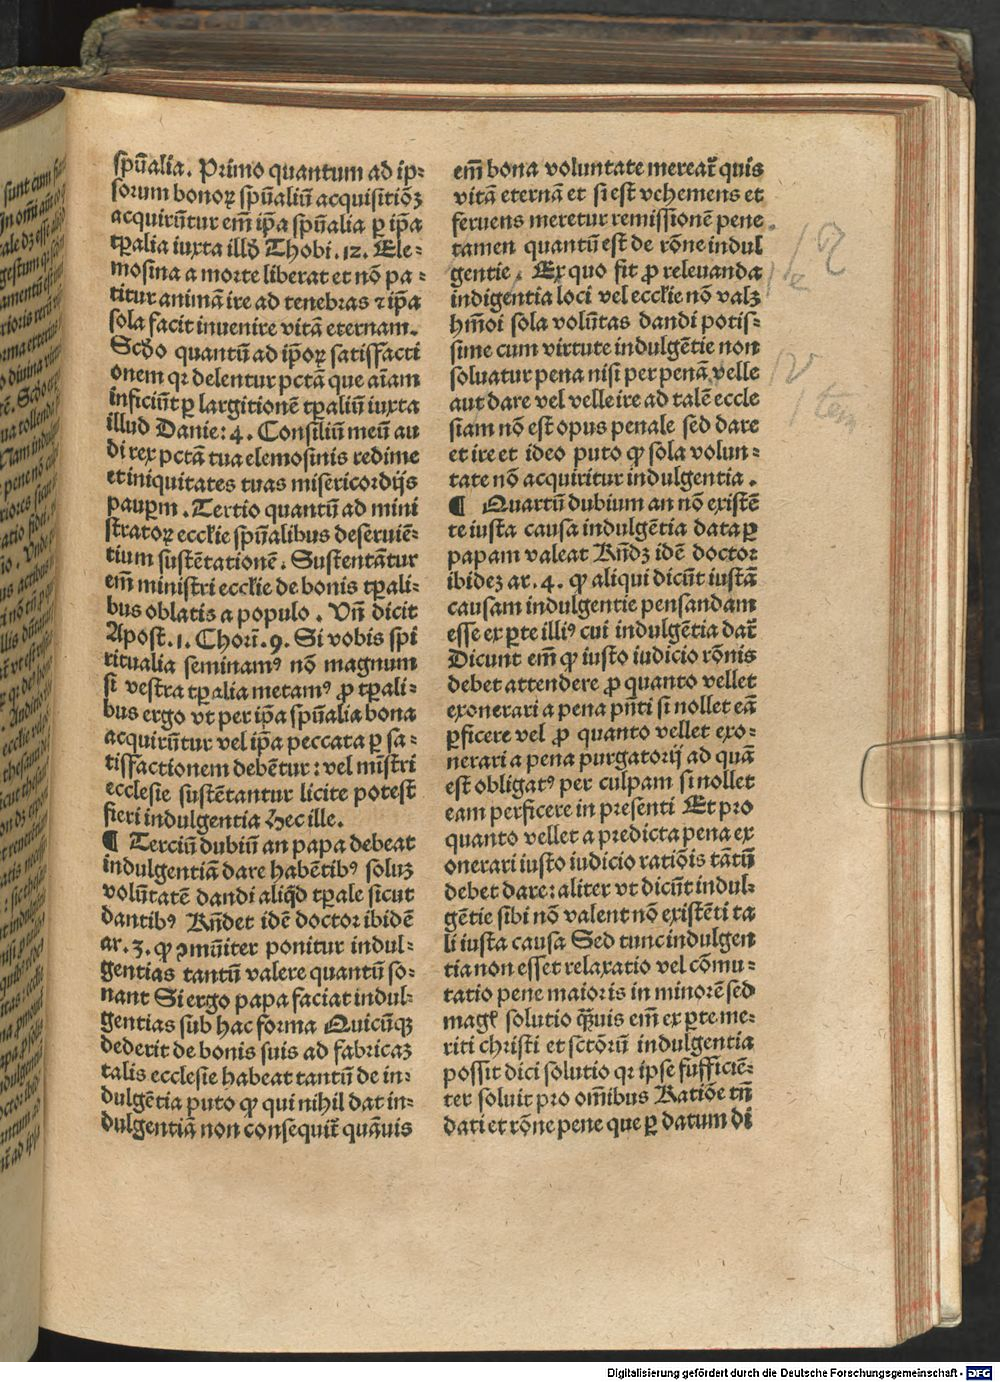 spũalia. Primo quantum ad ip⸗
sorum bonoꝝ spũaliũ acquisitiõꝫ
acquirũtur em̃ ip̃a spũalia ꝑ ip̃a
tꝑalia iuxta illđ Thobi. 12. Ele⸗
mosina a morte liberat et nõ pa⸗
titur animã ire ad tenebras ⁊ ip̃a
sola facit inuenire vitã eternam.
Scđo quantũ ad ip̃oꝝ satisfacti
onem qꝛ delentur pctã que aĩam
inficiũt ꝑ largitionẽ tꝑaliũ iuxta
illud Danie: 4. Consiliũ meũ au
di rex pctã tua elemosinis redime
et iniquitates tuas misericordijs
pauꝑm. Tertio quantũ ad mini
stratoꝝ eccłie spũalibus deseruiẽ⸗
tium sustẽtationẽ. Sustentãtur
em̃ ministri eccłie de bonis tꝑali⸗
bus oblatis a populo. Vñ dicit
Apost. 1. Choꝛ̃. 9. Si vobis spi
ritualia seminamꝰ nõ magnum
si vestra tꝑalia metamꝰ ꝓ tꝑali⸗
bus ergo vt per ip̃a spũalia bona
acquirũtur vel ip̃a peccata ꝑ sa⸗
tisfactionem debẽtur: vel mĩstri
ecclesie sustẽtantur licite potest
fieri indulgentia Hec ille.
¶ Terciũ dubiũ an papa debeat
indulgentiã dare habẽtibꝰ soluꝫ
volũtatẽ dandi aliq̃d tꝑale sicut
dantibꝰ Rñdet idẽ doctor ibidẽ
ar. 3. ꝙ ꝯmũiter ponitur indul⸗
gentias tantũ valere quantũ so⸗
nant Si ergo papa faciat indul⸗
gentias sub hac forma Quicũqꝫ
dederit de bonis suis ad fabricaꝫ
talis ecclesie habeat tantũ de in⸗
dulgẽtia puto ꝙ qui nihil dat in⸗
dulgentiã non consequit̃ quãuis
em̃ bona voluntate mereat̃ quis
vitã eternã et si est vehemens et
feruens meretur remissionẽ pene
tamen quantũ est de rõne indul
gentie. Ex quo fit ꝓ releuanda
indigentia loci vel eccłie nõ valꝫ
hm̃oi sola volũtas dandi potis⸗
sime cum virtute indulgẽtie non
soluatur pena nisi per penã velle
aut dare vel velle ire ad talẽ eccle
siam nõ est opus penale sed dare
et ire et ideo puto ꝙ sola volun⸗
tate nõ acquiritur indulgentia.
¶ Quartũ dubium an nõ existẽ
te iusta causa indulgẽtia data ꝑ
papam valeat Rñdꝫ idẽ doctor
ibideꝫ ar. 4. ꝙ aliqui dicũt iustã
causam indulgentie pensandam
esse ex ꝑte illiꝰ cui indulgẽtia dat̃
Dicunt em̃ ꝙ iusto iudicio rõnis
debet attendere ꝓ quanto vellet
exonerari a pena pñti si nollet eã
ꝑficere vel ꝓ quanto vellet exo⸗
nerari a pena purgatorij ad quã
est obligatꝰ per culpam si nollet
eam perficere in presenti Et pro
quanto vellet a predicta pena ex
onerari iusto iudicio ratiõis tãtũ
debet dare: aliter vt dicũt indul⸗
gẽtie sibi nõ valent nõ existẽti ta
li iusta causa Sed tunc indulgen
tia non esset relaxatio vel cõmu⸗
tatio pene maioris in minorẽ sed
magꝭ solutio q̃uis em̃ ex ꝑte me⸗
riti christi et sctõrũ indulgentia
possit dici solutio qꝛ ipse sufficiẽ⸗
ter soluit pro om̃ibus Ratiõe tñ
dati et rõne pene que ꝑ datum di
Digitalisierung gefördert durch die Deutsche Forschungsgemeinschaft - DFG